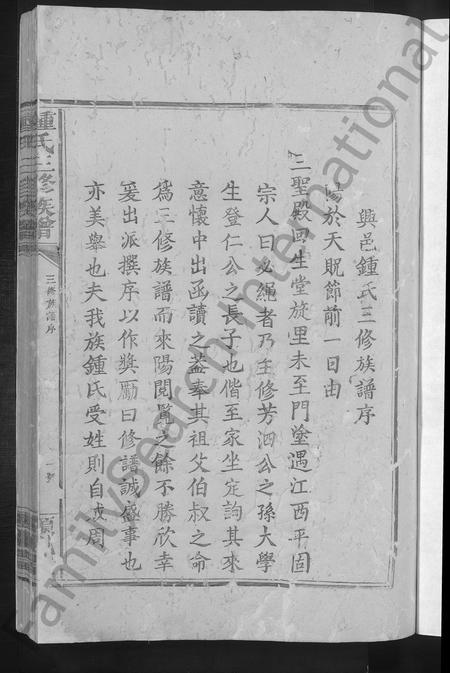 與邑鍾氏三修族譜序
陽於天貺節前一日由
三聖殿回生堂旋里未至門塗遇江西平固
宗人曰必繩者乃主修芳泗公之孫大學
生登仁公之長子也偕至家坐定詢其來
意懷中出函讀之蓋奉其祖父伯叔之命
為三修族譜而來陽閱覽之餘不勝欣幸
爰出派撰序以作獎勵曰修譜誠盛事也
亦美舉也夫我族鍾氏受姓則自成周
鍾氏三修族譜
三修族譜序
一
FamilySearch International